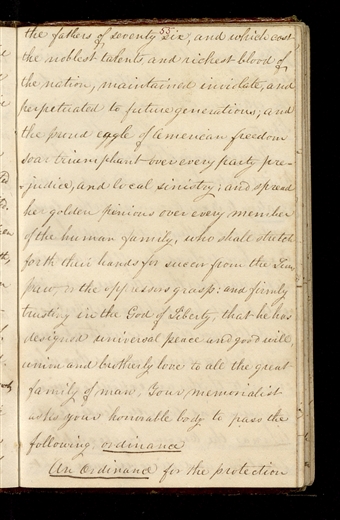 55
the fathers of seventy six, and which cost
the noblest talents, and richest blood of
the nation, maintained inviolate, and
perpetuated to future generations; and
the proud eagle of American freedom
soar triumphant over every party pre-
-judice, and local sinistry; and spread
her golden pinions over every member
of the human family, who shall stretch
forth their hands for succor from the Lion
paw, or the oppressors grasp: and firmly
trusting in the God of Liberty, that he has
designed universal peace and good will,
union and brotherly love to all the great
family of man, Your, memorialist
asks your honorable body to pass the
following ordinance
An Ordinance for the protection